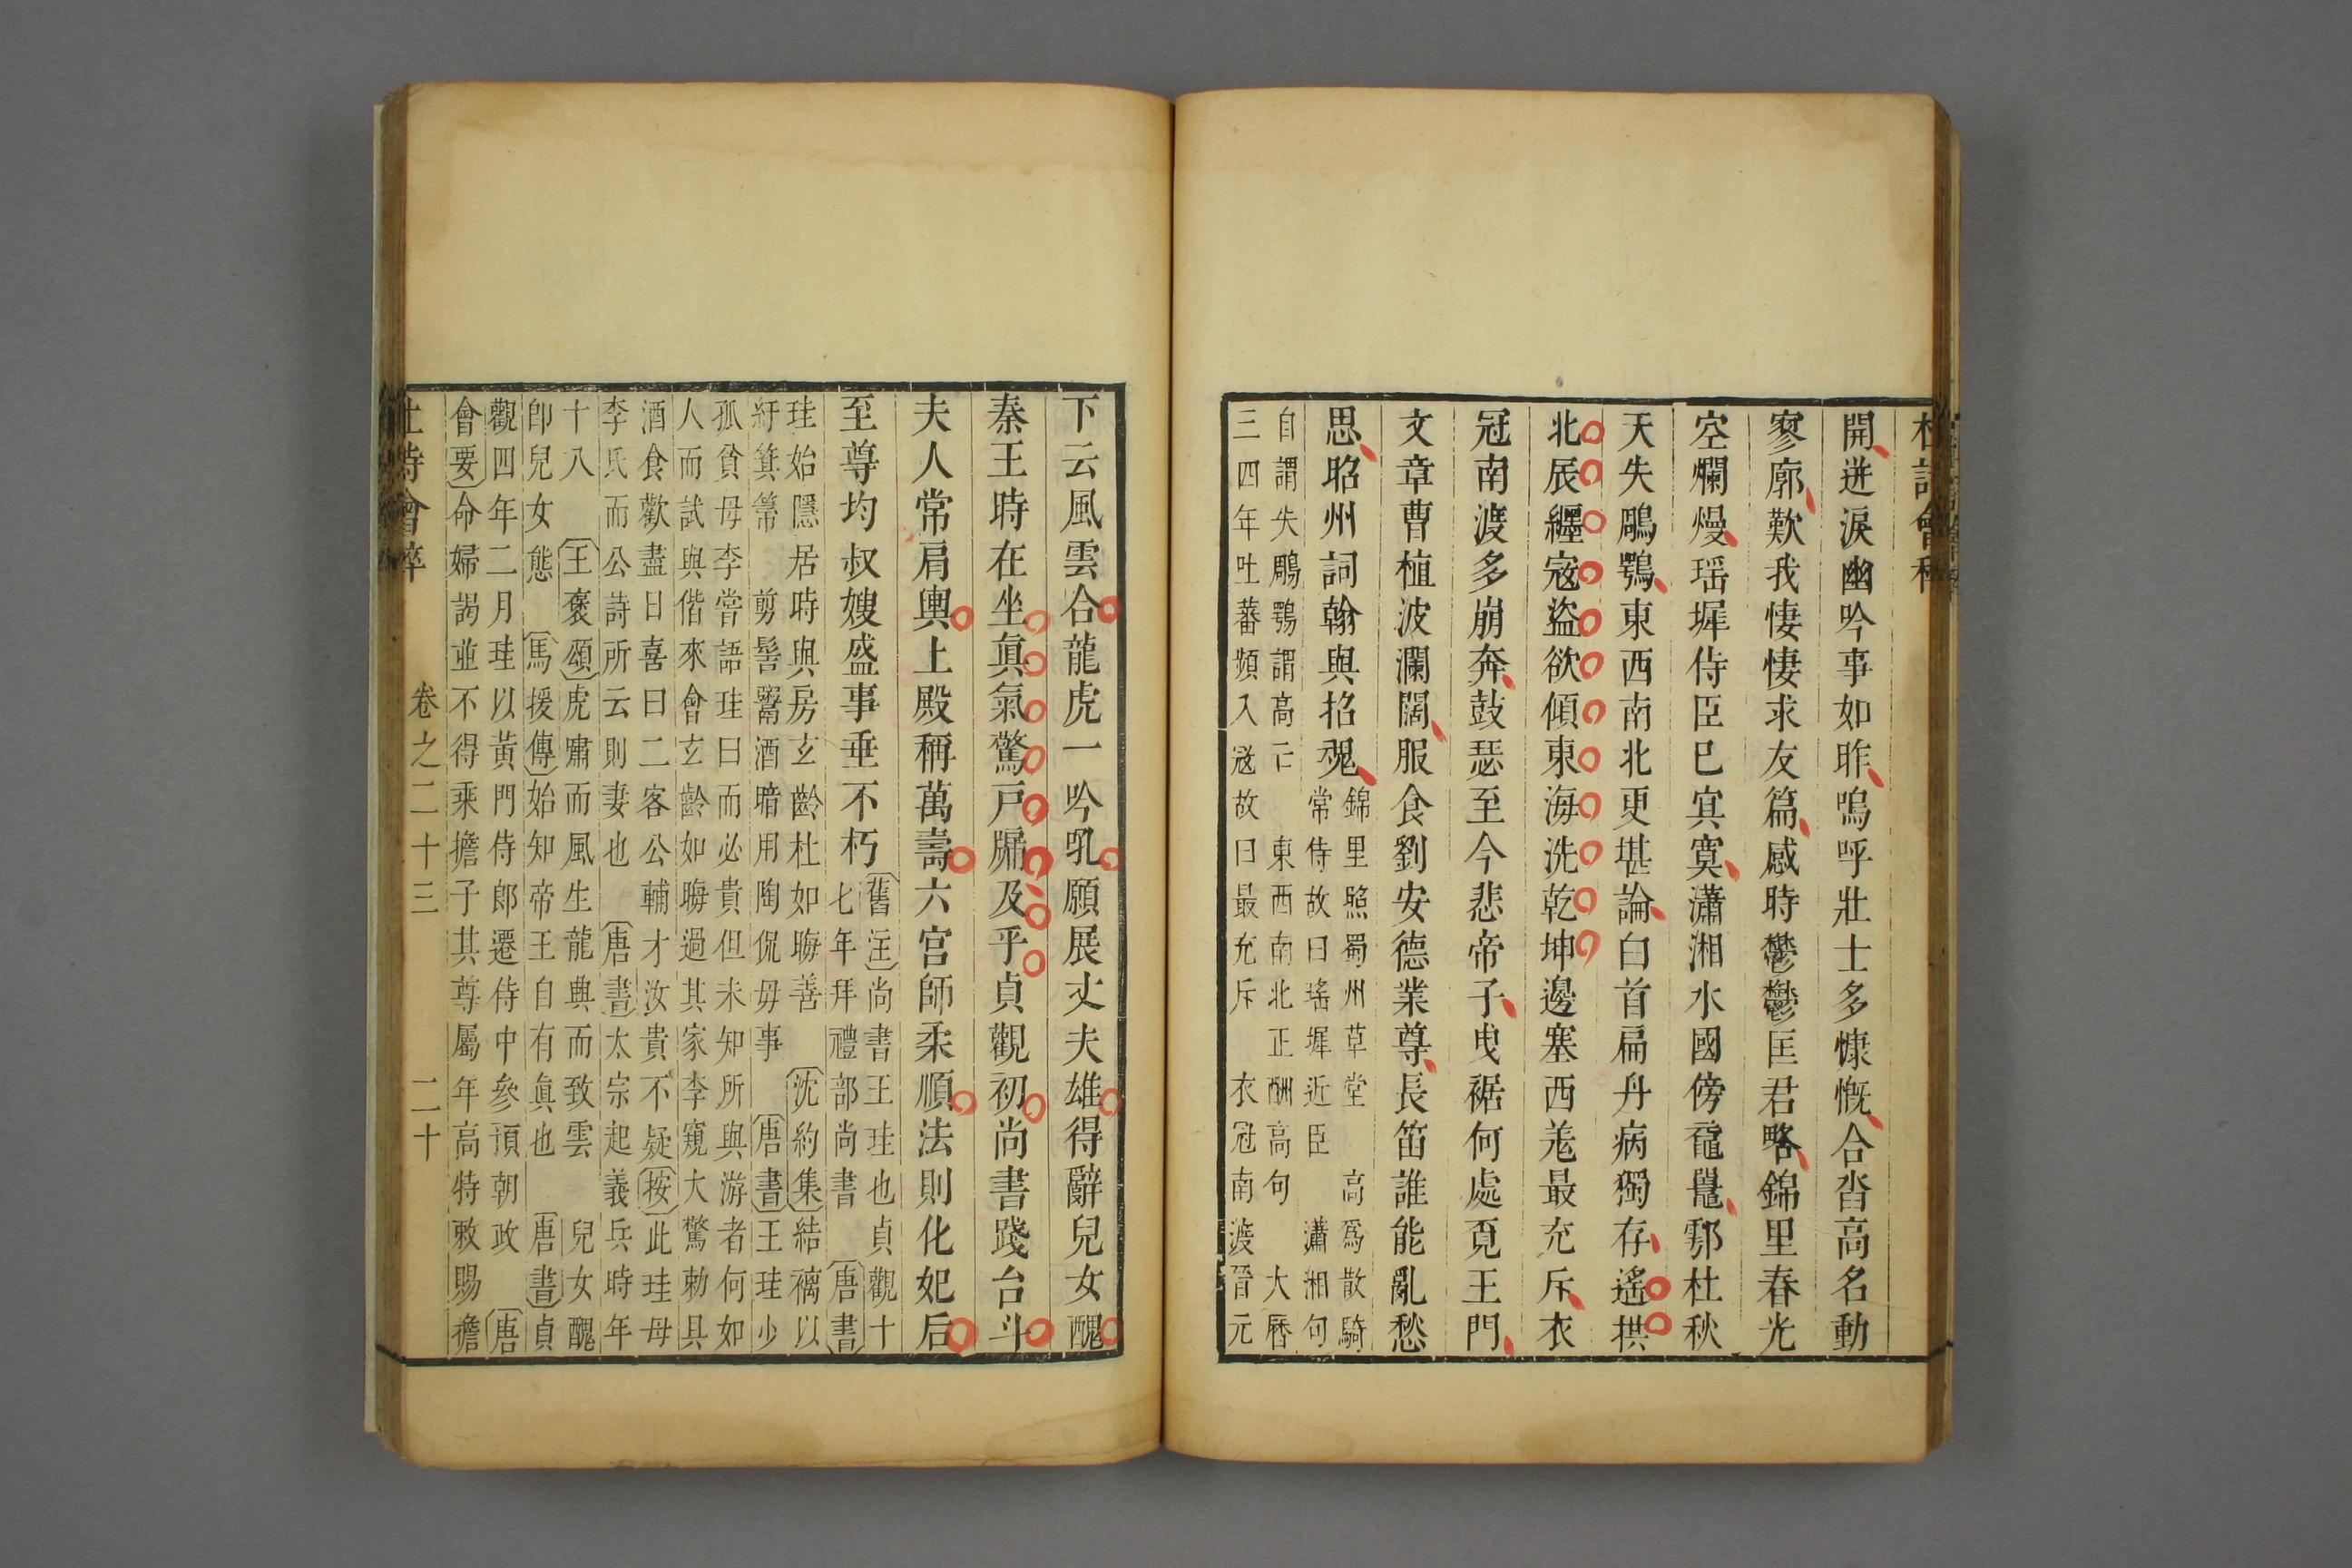 開迸淚幽吟事如昨嗚呼壯士多慷慨合沓高名動
寥廓歎我悽悽求友篇感時鬱鬱匡君略錦里春光
空爛熳瑶墀侍臣已㝠寞瀟湘水國傍黿鼉鄠杜秋
天失鵰鶚東西南北更堪論白首扁舟病獨存遙拱
北辰纏寇盜欲傾東海洗乾坤邊塞西羌最充斥衣
冠南渡多崩奔鼓瑟至今悲帝子曳裾何處覓王門
文章曹植波瀾闊服食劉安德業尊長笛誰能亂愁
思昭州詞翰與招魂
錦里照蜀州草堂 高爲散騎
常侍故曰瑤墀近臣 瀟湘句
自謂失鵰鶚謂高亡 東西南北正酬高句 大曆
三四年吐蕃頻入寇故曰最充斥 衣冠南渡晉元
下云風雲合龍虎一吟吼願展丈夫雄得辭兒女醜
秦王時在坐眞氣驚戸牖及乎貞觀初尚書踐台斗
夫人常肩輿上殿稱萬壽六宫師柔順法則化妃后
至尊均叔嫂盛事垂不朽
舊注尚書王珪也貞觀十
七年拜禮部尚書 唐書
珪始隱居時與房玄齡杜如晦善 沈約集結褵以
紆箕箒 剪髻鬻酒暗用陶侃母事 唐書王珪少
孤貧母李嘗語珪曰而必貴但未知所與游者何如
人而試與偕來會玄齡如晦過其家李窺大驚勅具
酒食歡盡日喜曰二客公輔才汝貴不疑按此珪母
李氏而公詩所云則妻也 唐書太宗起義兵時年
十八 王褒頌虎嘯而風生龍興而致雲 兒女醜
卽兒女態 馬援傳始知帝王自有眞也 唐書貞
觀四年二月珪以黃門侍郎遷侍中參預朝政 唐
會要命婦謁並不得乘擔子其尊屬年高特敕賜擔
杜詩會稡 卷之二十三 二十